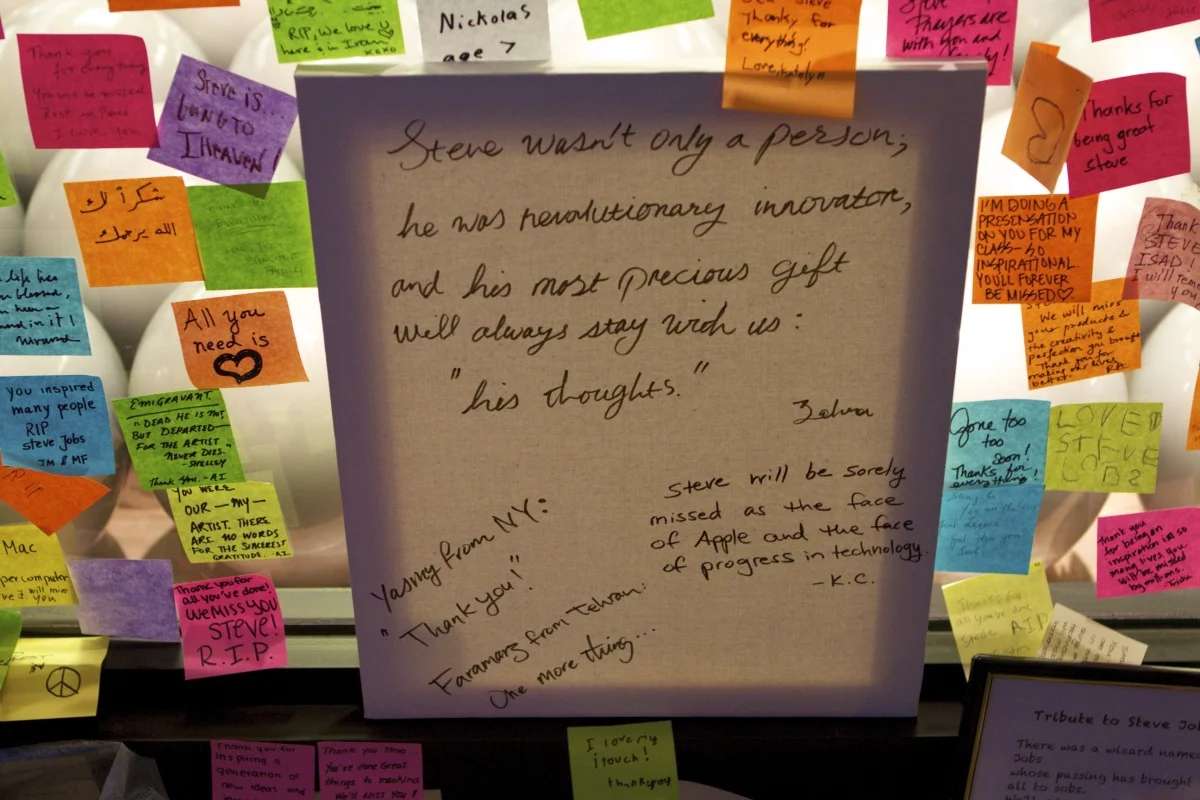 RIP, We love
here in Iran
xoxo
Nickolas
age 7
Steve
Thanks for
everything!
Love,
Prayers are
with you and
family!
Thank you
for everything
You will be missed
Rest in Peace
I Love you
Steve is...
GOING TO
HEAVEN!
شكراً لك
الله يرحمك
All you
need is
life has
blessed,
and in it!
you inspired
many people
RIP
steve Jobs
JM & MF
EMIGRAVANT.
"DEAD HE IS NOT
BUT DEPARTED—
FOR THE ARTIST
NEVER DIES."
-SHELLEY
Thank You. -A.I.
YOU WERE
OUR —MY—
ARTIST. THERE
ARE NO WORDS
FOR THE SINCEREST
GRATITUDE. A.I.
Mac
per computer
will miss
you
Thank you for
all you've done!
WE MISS YOU
STEVE!
R.I.P.
Steve wasn't only a person;
he was revolutionary innovator,
and his most precious gift
will always stay with us:
"his thoughts."
Zahra
Steve will be sorely
missed as the face
of Apple and the face
of progress in technology.
- K.C.
Yasmy from NY:
"Thank you!"
Faramarz from Tehran:
One more thing...
Thanks for
being great
Steve
I'M DOING A
PRESENSATION
ON YOU FOR MY
CLASS- SO
INSPIRATIONAL
YOU'LL FOREVER
BE MISSED♡
Thank
STEVE
ISAD!
I will rem
you
We will miss
your products &
the creativity &
perfection you brought
Thank you for
making our lives
better.
Gone too
too
Soon!
Thanks for
everything!
LOVED
STEVE
JOBS
Thank you
for being an
inspiration in so
many lives. You
will be missed
by millions.
Thanks for
all you've done
Steve
RIP
Thank you for
inspiring a
generation of
new ideas and
Thank you Steve
You've done great
things to mankind
We'll miss you!
I love my
itouch!
thank you
Tribute to Steve Jo
There was a wizard named
Jobs
whose passing has brought
all to sobs.